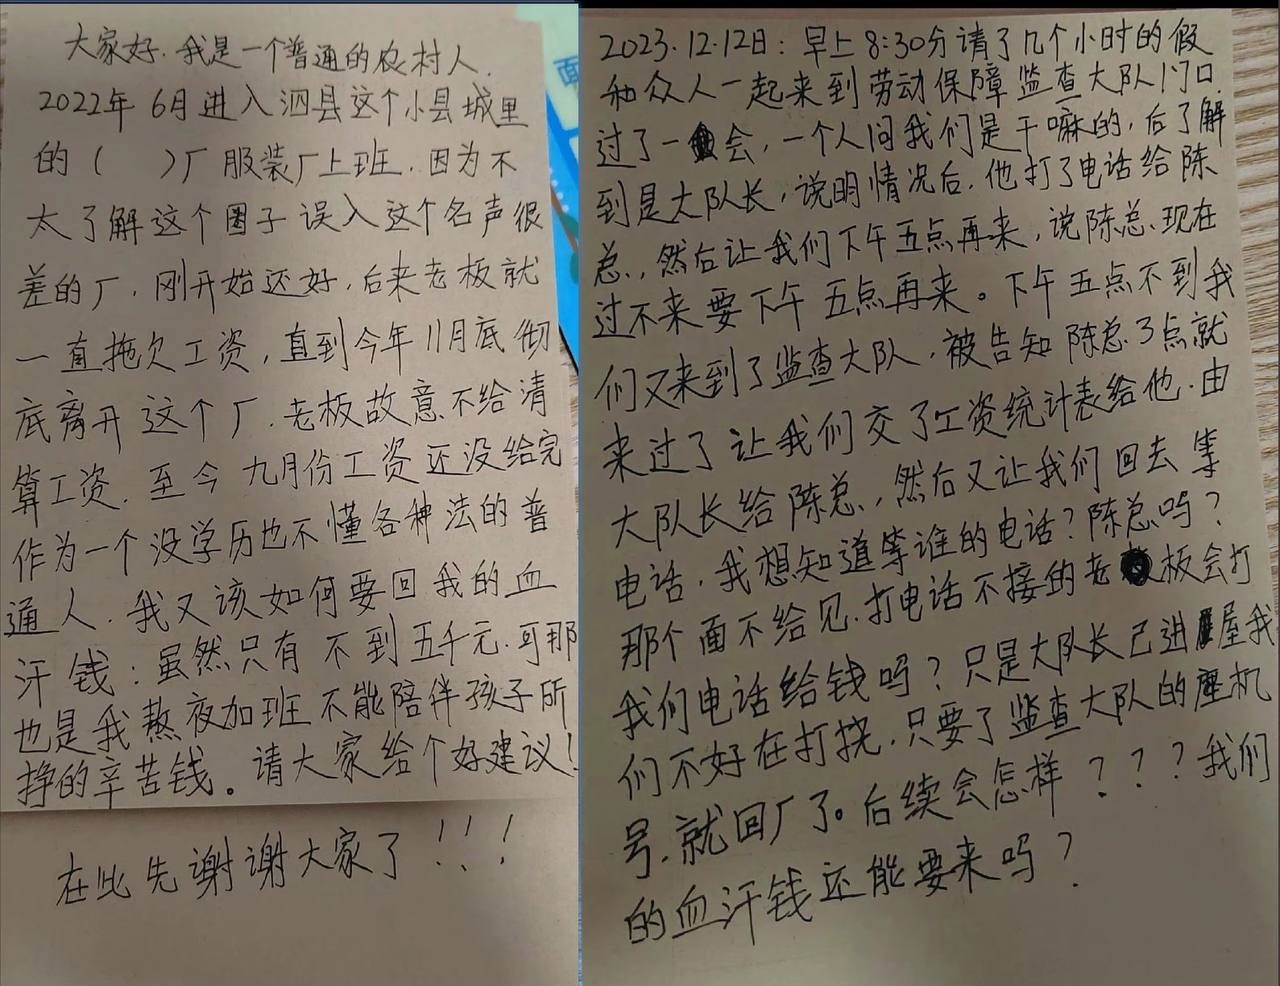 大家好.我是一个普通的农村人.
2022年6月进入泗县这个小县城里
的(    )厂服装厂上班.因为不
太了解这个圈子误入这个名声很
差的厂,刚开始还好,后来老板就
一直拖欠工资,直到今年11月底彻
底离开这个厂.老板故意不给清
算工资.至今九月份工资还没给完
作为一个没学历也不懂各种法的普
通人.我又该如何要回我的血
汗钱:虽然只有不到五千元.可那
也是我熬夜加班不能陪伴孩子所
挣的辛苦钱。请大家给个好建议!
在此先谢谢大家了!!!
2023.12.12日:早上8:30分请了几个小时的假
和众人一起来到劳动保障监查大队门口.
过了一会,一个人问我们是干嘛的,后了解
到是大队长,说明情况后,他打了电话给陈
总,然后让我们下午五点再来,说陈总.现在
过不来要下午五点再来。下午五点不到我
们又来到了监查大队,被告知陈总3点就
来过了让我们交了工资统计表给他.由
大队长给陈总,然后又让我们回去等
电话,我想知道等谁的电话?陈总吗?
那个面不给见.打电话不接的老板会打
我们电话给钱吗?只是大队长已进屋我
们不好在打挠.只要了监查大队的座机
号.就回厂了。后续会怎样???我们
的血汗钱还能要来吗?